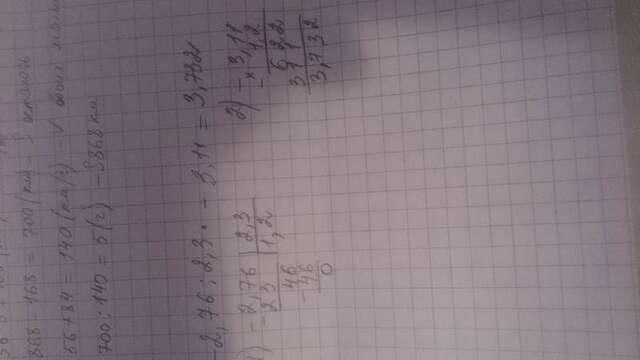 868 - 168 = 700 (км) - S осталось
56 + 84 = 140 (км/ч) - V обоих
700 : 140 = 5 (ч) - S 868 км
-2,76 : 2,3 · - 3,11 = 3,732
1) - 2,76 | 2,3
- 23 | 1,2
46
- 46
0
2) - 3,11
× - 1,2
622
311
3,732